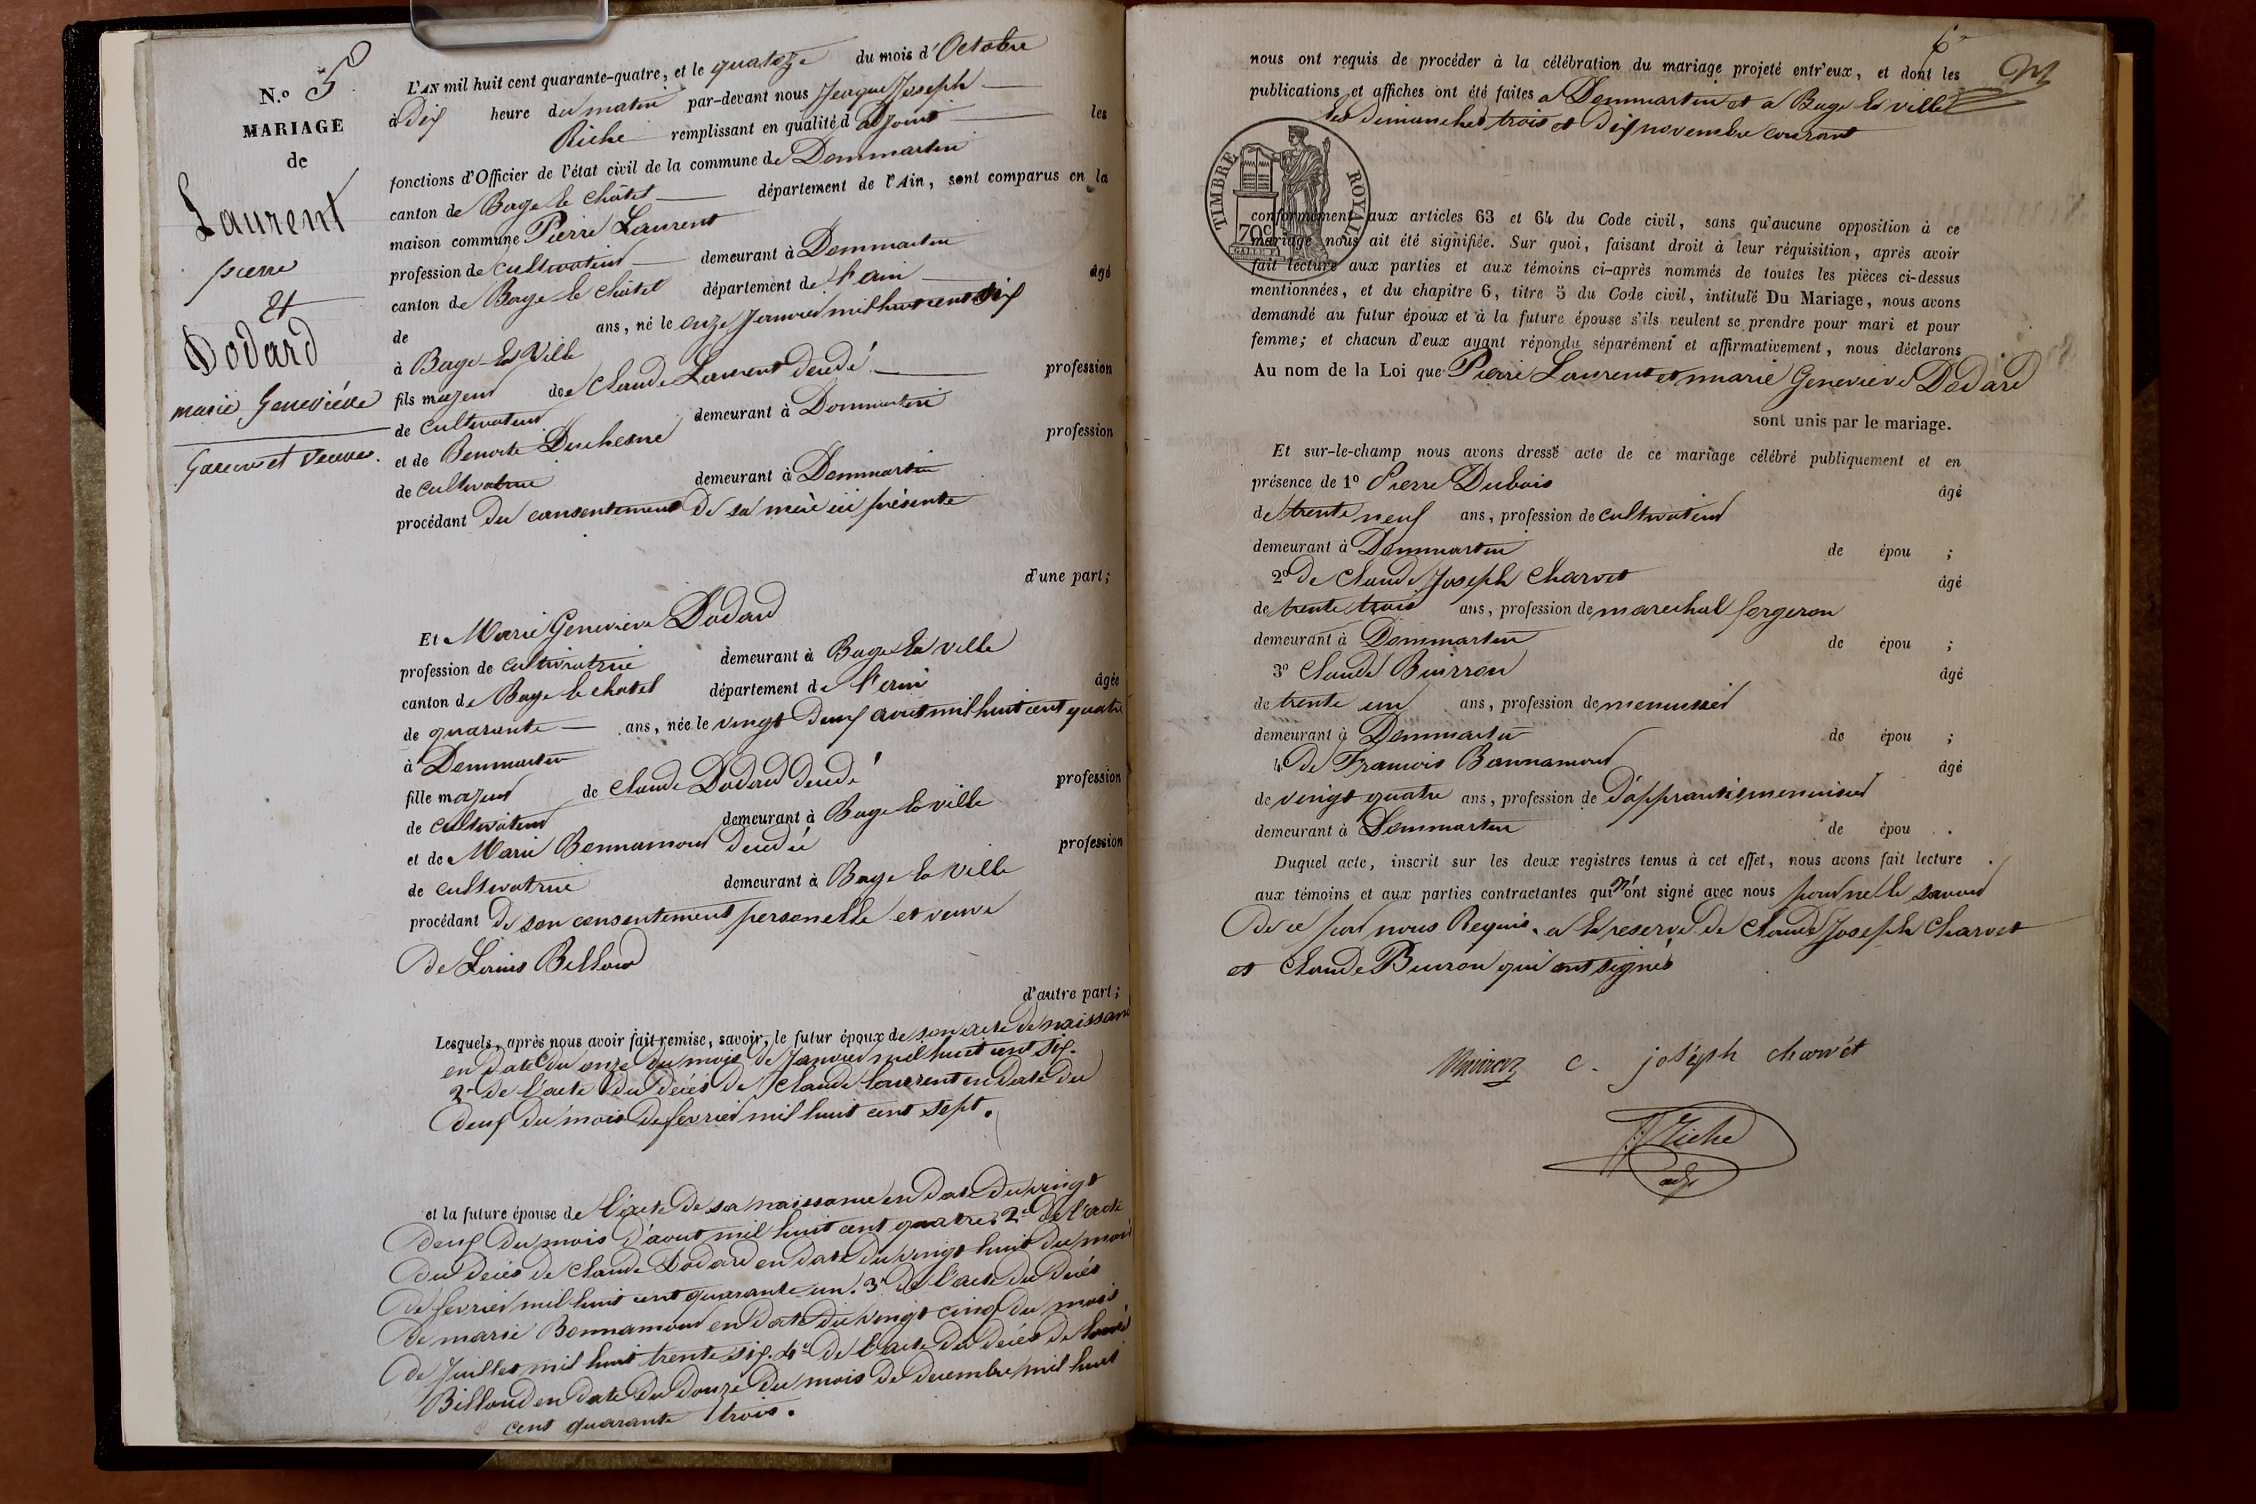 N.º 5
MARIAGE
de
Laurent
pierre
Et
Dodard
marie Geneviéve
Garcon et Veuve.
L'AN mil huit cent quarante-quatre, et le quatoze du mois d'Octobre
à dix heure du matin par-devant nous Jacque Joseph
Riche remplissant en qualité d adjoint les
fonctions d'Officier de l'état civil de la commune de Dommartin
canton de Bage le châtel département de l'Ain, sont comparus en la
maison commune Pierre Laurent
profession de cultivateur demeurant à Dommartin
canton de Bage le châtel département de l'ain âgé
de ans, né le onze janvier mil huit cent six
à Bage la Ville
fils majeur de Claude Laurent décédé profession
de cultivateur demeurant à Dommartin
et de Benoite Duchesne profession
de cultivatrice demeurant à Dommartin
procédant du consentement de sa mère ici présente
d'une part;
Et Marie Genevieve Dodard
profession de cultivatrice demeurant à Bage la ville
canton de Bage le chatel département de l'ain âgée
de quarante ans, née le vingt deux avout mil huit cent quatre
à Dommartin
fille majeur de Claude Dodard décédé profession
de cultivateur demeurant à Bage la ville
et de Marie Bonnamour décédée profession
de cultivatrice demeurant à Bage la ville
procédant de son consentement personelle et veuve
de Louis Billoud
d'autre part;
Lesquels, après nous avoir fait remise, savoir, le futur époux de son acte de naissance
en date du onze du mois de Janvier mil huit cent six.
2º de l'acte du décès de Claude Laurent en date du
deux du mois de fevrier mil huit cent sept.
et la future épouse de l'acte de sa naissance en date du vingt
deux du mois d'avout mil huit cent quatre. 2º de l'acte
du décès de Claude Dodard en date du vingt huit du mois
de fevrier mil huit cent quarante un. 3º de l'acte du décès
de marie Bonnamour en date du vingt cinq du mois
de Juillet mil huit trente six. 4º de l'acte du décès de Louis
Billoud en date du douze du mois de decembre mil huit
cent quarante trois.
6
nous ont requis de procéder à la célébration du mariage projeté entr'eux, et dont les
publications et affiches ont été faites a Dommartin et a Bage la ville
les dimanches trois et dix novembre courant
TIMBRE ROYAL
70c
conformément aux articles 63 et 64 du Code civil, sans qu'aucune opposition à ce
mariage nous ait été signifiée. Sur quoi, faisant droit à leur réquisition, après avoir
fait lecture aux parties et aux témoins ci-après nommés de toutes les pièces ci-dessus
mentionnées, et du chapitre 6, titre 5 du Code civil, intitulé Du Mariage, nous avons
demandé au futur époux et à la future épouse s'ils veulent se prendre pour mari et pour
femme; et chacun d'eux ayant répondu séparément et affirmativement, nous déclarons
Au nom de la Loi que Pierre Laurent et marie Genevieve Dodard
sont unis par le mariage.
Et sur-le-champ nous avons dressé acte de ce mariage célébré publiquement et en
présence de 1º Pierre Dubois âgé
de trente neuf ans, profession de cultivateur
demeurant à Dommartin de épou ;
2º de Claude Joseph Charvet âgé
de trente trois ans, profession de marechal forgeron
demeurant à Dommartin de épou ;
3º Claude Buirron âgé
de trente un ans, profession de menusier
demeurant à Dommartin de épou ;
4º De Francois Bonnamour âgé
de vingt quatre ans, profession de d'apprantis menuisier
demeurant à Dommartin de épou .
Duquel acte, inscrit sur les deux registres tenus à cet effet, nous avons fait lecture
aux témoins et aux parties contractantes qui n'ont signé avec nous pour ne le savoir
de ce par nous Requis. a la reserve de Claude Joseph Charvet
et Claude Buiron qui ont signés
c. joséph charvét
JJ Riche
adj